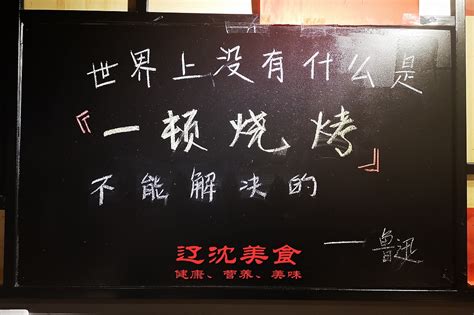 世界上没有什么是
『一顿烧烤』
不能解决的
——鲁迅
辽沈美食
健康、营养、美味